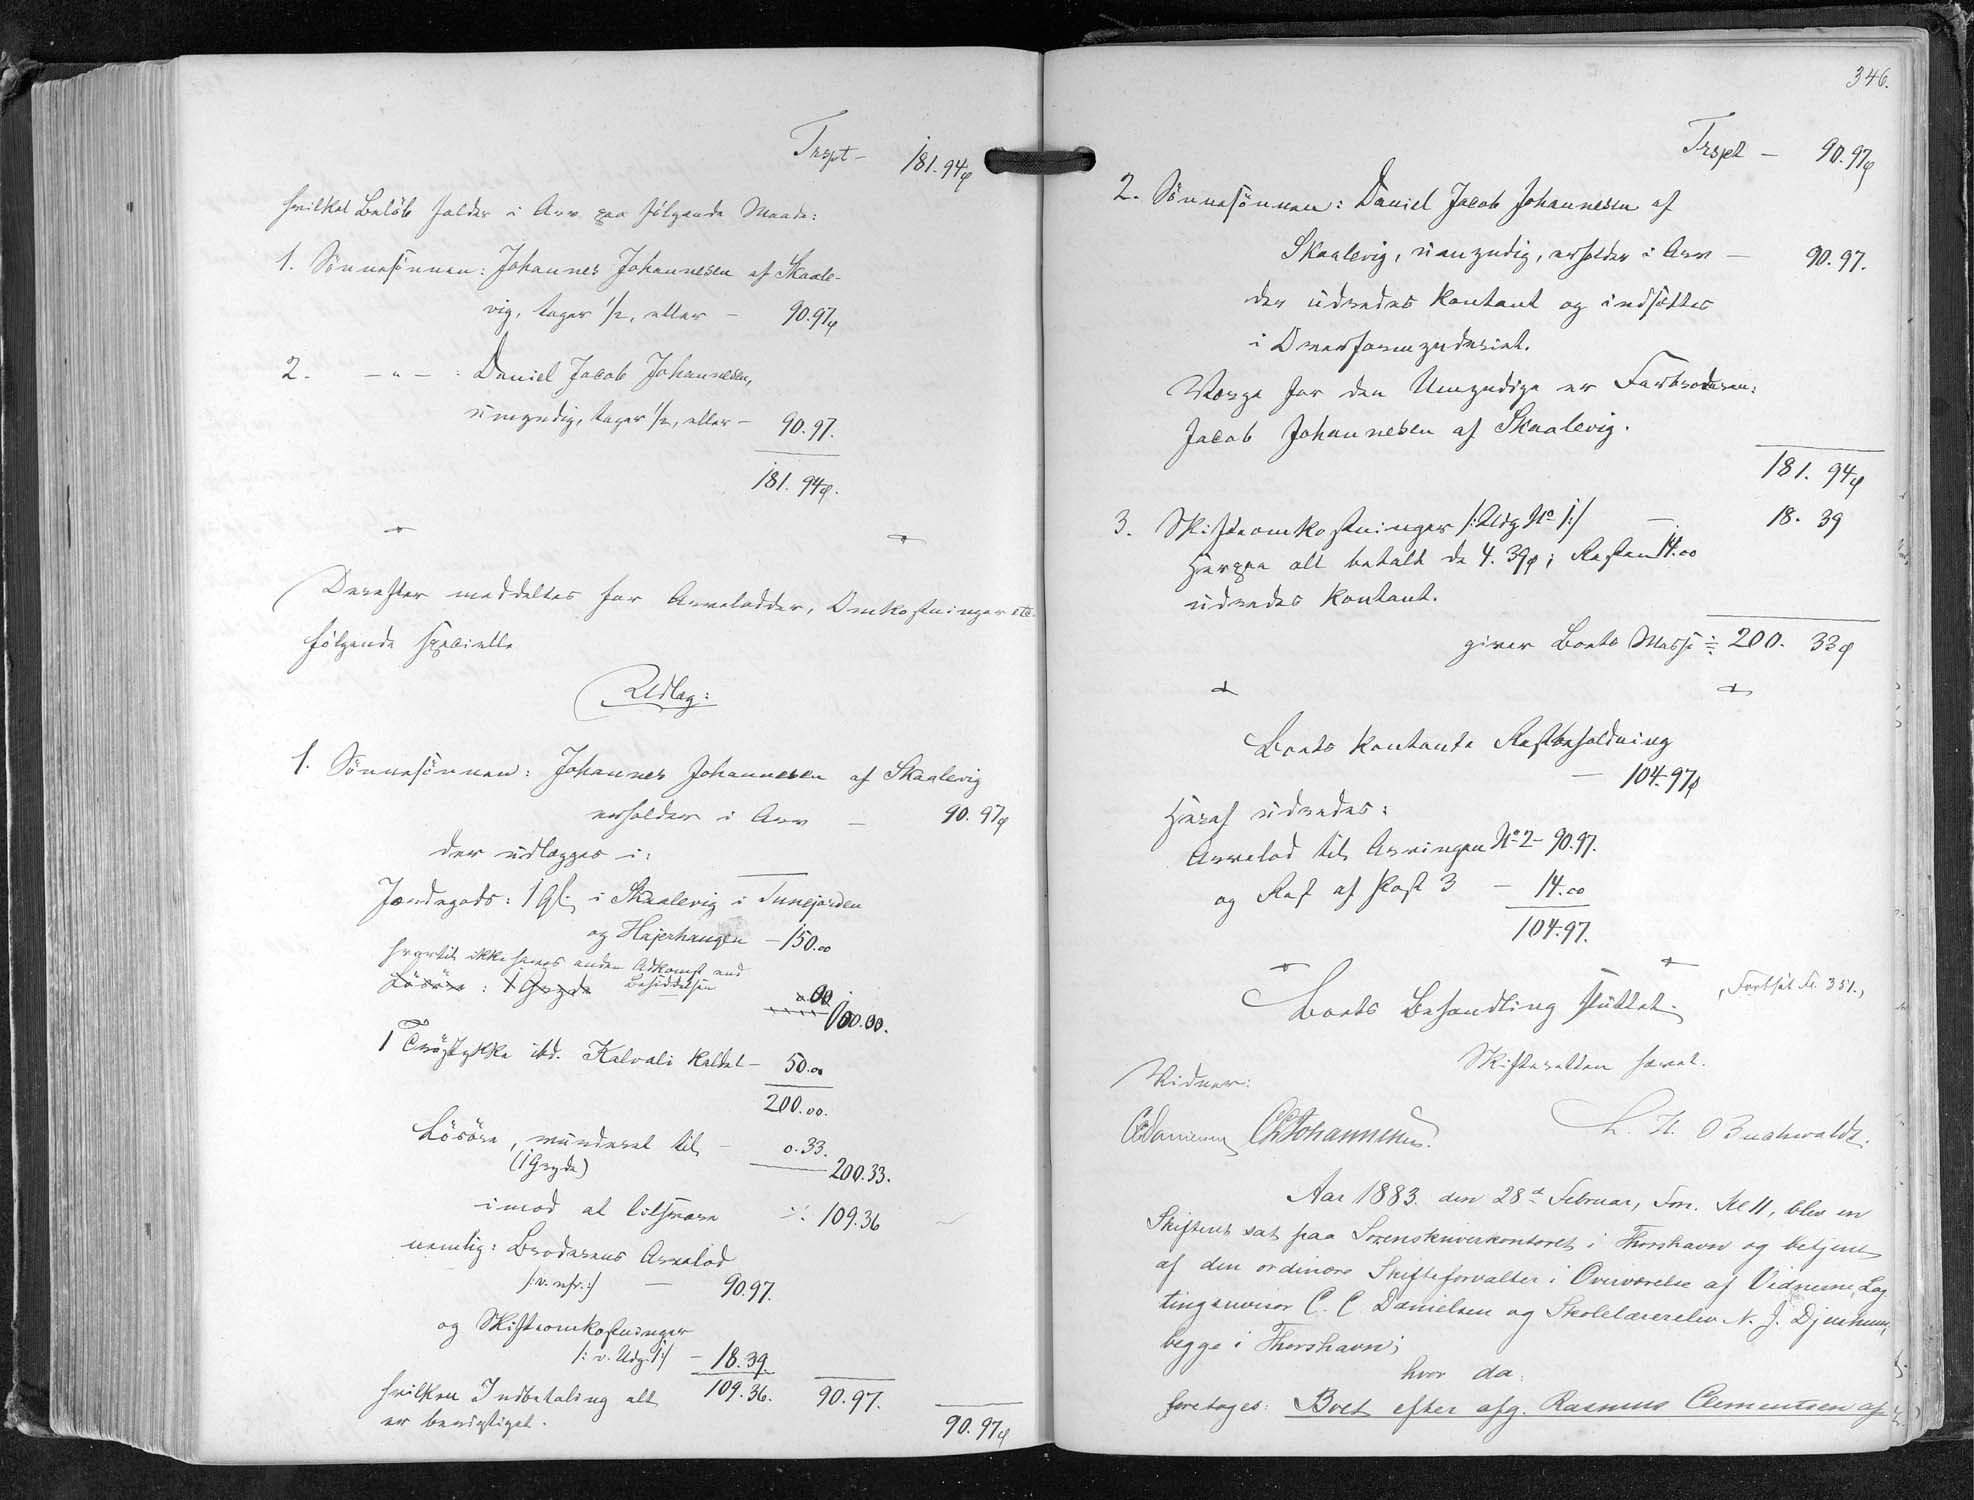 Trspt - 181.94ɟ
hvilket Beløb falder i Arv paa følgende Maade:
1. Sønnesønnen: Johannes Johannesen af Skaale-
vig, tager 1/2, eller - 90.97ɟ
2. - " - : Daniel Jacob Johannesen,
umyndig, tager 1/2, eller - 90.97.
181. 94ɟ.
Derefter meddeltes for Arvelodder, Omkostninger etc.
følgende specielle
Udlæg:
1. Sønnesønnen: Johannes Johannesen af Skaalevig
erholder i Arv - 90. 97ɟ
der udlægges i:
Jordegods: 1 Gl. i Skaalevig i Tunejorden
og Højerhaugen - 150.00
hvortil ikke haves anden Adkomst end
Besiddelsen
Løsøre : 1 Gryde
1 Trøstykke ibd. Kalvali kaldet - 50.00
200.00.
Løsøre, vurderet til - 0.33.
(1 Gryde) 200.33.
imod at tilsvare ·/· 109.36
nemlig: Broderens Arvelod
/: v. nfr. :/ - 90.97.
og Skifteomkostninger
/: v. Udg. 1 :/ - 18.39.
hvilken Indbetaling alt 109.36. 90.97.
er berigtiget. 90.97ɟ
346.
Trspt - 90.97ɟ
2. Sønnesønnen: Daniel Jacob Johannesen af
Skaalevig, umyndig, erholder i Arv - 90.97.
der udredes kontant og indsættes
i Overformynderiet.
Værge for den Umyndige er Farbroderen:
Jacob Johannesen af Skaalevig.
181. 94ɟ
3. Skifteomkostninger /: Udg No 1 :/ - 18. 39
Herpaa alt betalt de 4.39ɟ; Resten 14.00
udredes kontant.
giver Boets Masse = 200. 33ɟ
Boets kontante Restbeholdning
- 104.97ɟ
Heraf udredes:
Arvelod til Arvingen No 2 - 90.97.
og Rest af Post 3 - 14.00
104.97.
Boets Behandling sluttet. (Fortsat Fo. 351.)
Skifteretten hævet.
Vidner:
C. Danielsen Johannesen. L. H. O Buchwaldt.
Aar 1883. den 28d Februar, Fm. Kl 11, blev en
Skifteret sat paa Sorenskriverkontoret i Thorshavn og betjent
af den ordinære Skifteforvalter i Overværelse af Vidnerne, Lag
tingsrevisor C. C Danielsen og Skolelærerelev N. J. Djurhuus,
begge i Thorshavn;
hvor da:
foretoges: Boet efter afg. Rasmus Clementsen af